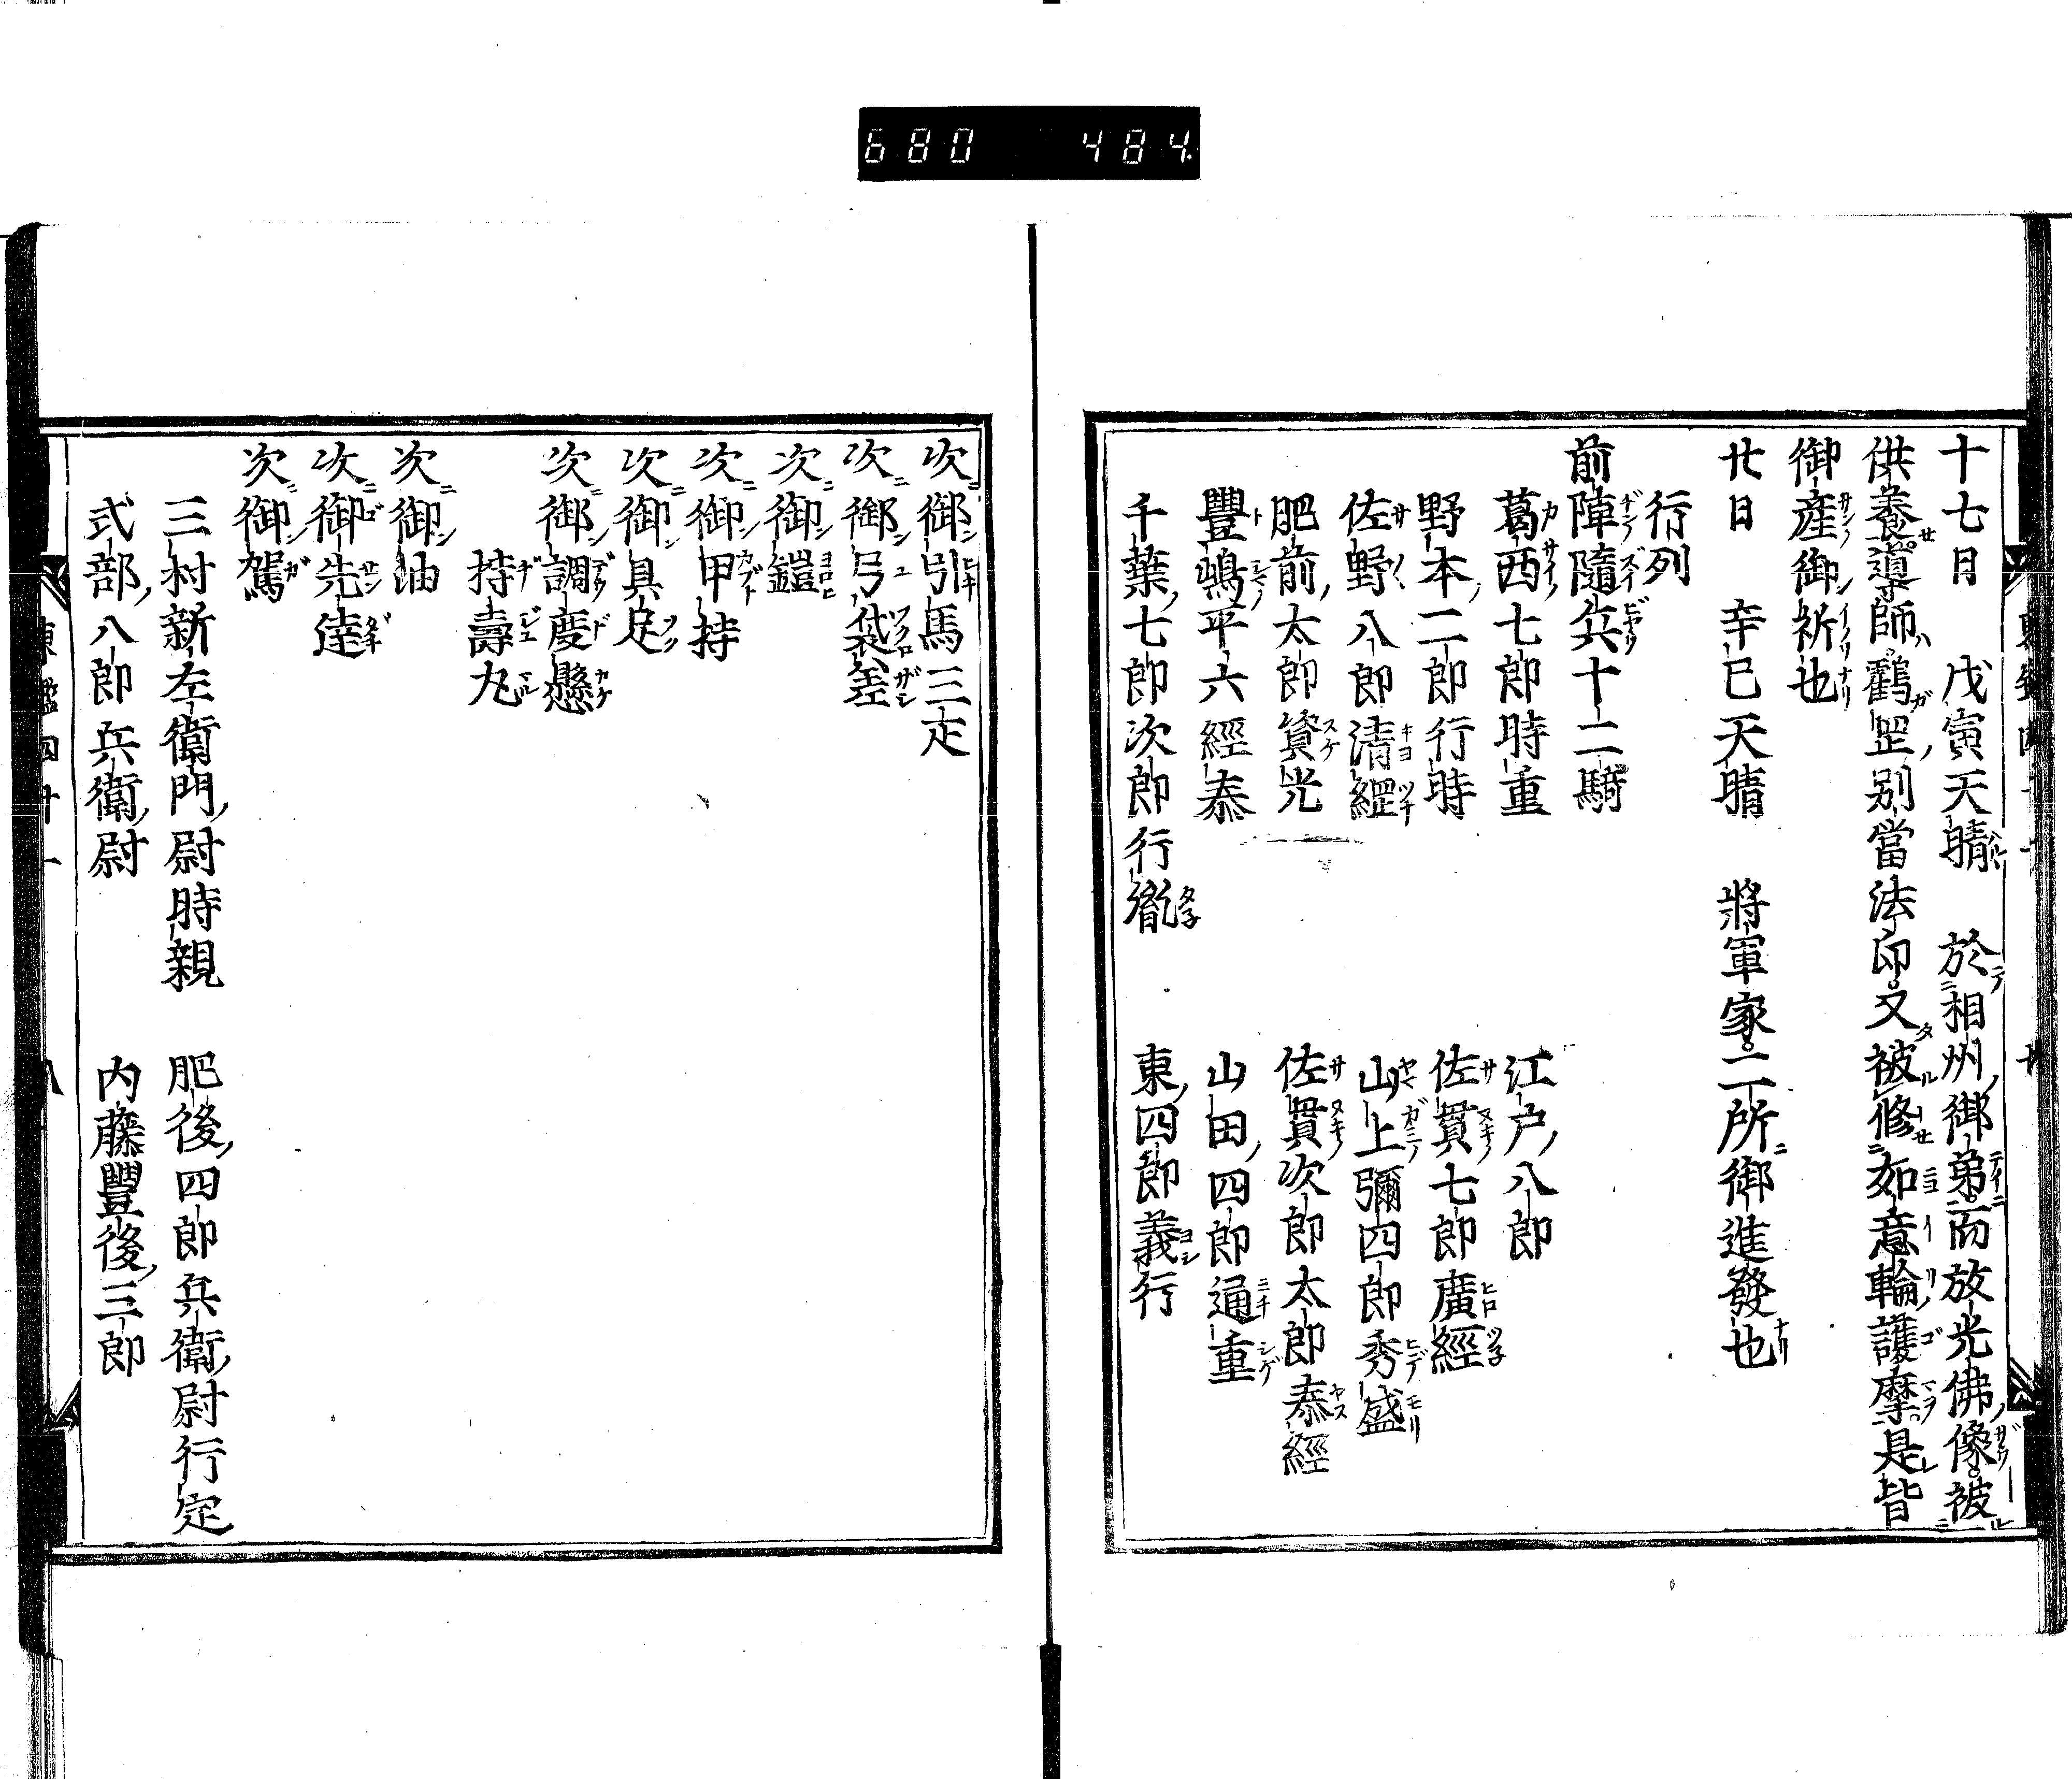 680 484
十七日 戊寅天晴 於相州御弟而放光佛像被
供養導師鶴岡別當法印又被修如意輪護摩是皆
御産御祈也
廿日 辛巳天晴 將軍家二所御進發也
行列
前陣隨兵十二騎
葛西七郎時重 江戸八郎
野本二郎行時 佐貫七郎廣經
佐野八郎清綱 山上彌四郎秀盛
肥前太郎資光 佐貫次郎太郎泰經
豐嶋平六經泰 山田四郎通重
千葉七郎次郎行胤 東四郎義行
次御引馬三疋
次御弓袋差
次御鎧
次御甲持
次御具足
次御調度懸
持壽丸
次御油
次御先達
次御駕
三村新左衛門尉時親 肥後四郎兵衛尉行定
式部八郎兵衛尉 内藤豐後三郎
東鑑四十一 八